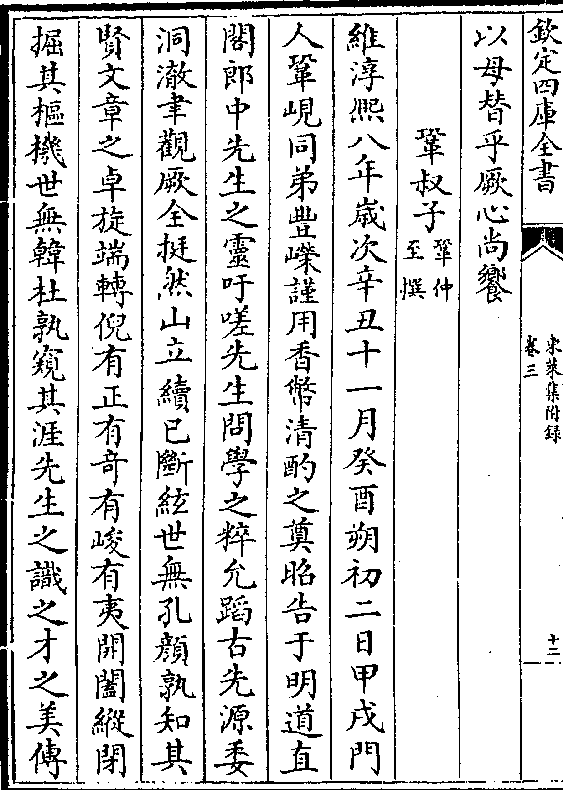 欽定四庫全書
東萊集附録
卷三
十二
以母替乎厥心尚饗
鞏叔子
鞏仲
至撰
維淳熙八年歳次辛丑十一月癸酉朔初二日甲戌門
人鞏峴同弟豐嶸謹用香幣清酌之奠昭告于明道直
閣郎中先生之靈吁嗟先生問學之粹允蹈古先源委
洞澈聿觀厥全挺然山立續已斷絃世無孔顔孰知其
賢文章之卓旋端轉倪有正有竒有峻有夷開闔縱閉
掘其樞機世無韓杜孰窺其涯先生之識之才之美傳